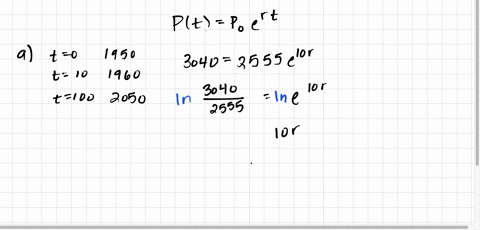 P(t) = P₀ e^{rt}
a) t=0 1950
t=10 1960
t=100 2050
3040 = 2555e^{10r}
ln 3040/2555 = ln e^{10r}
10r